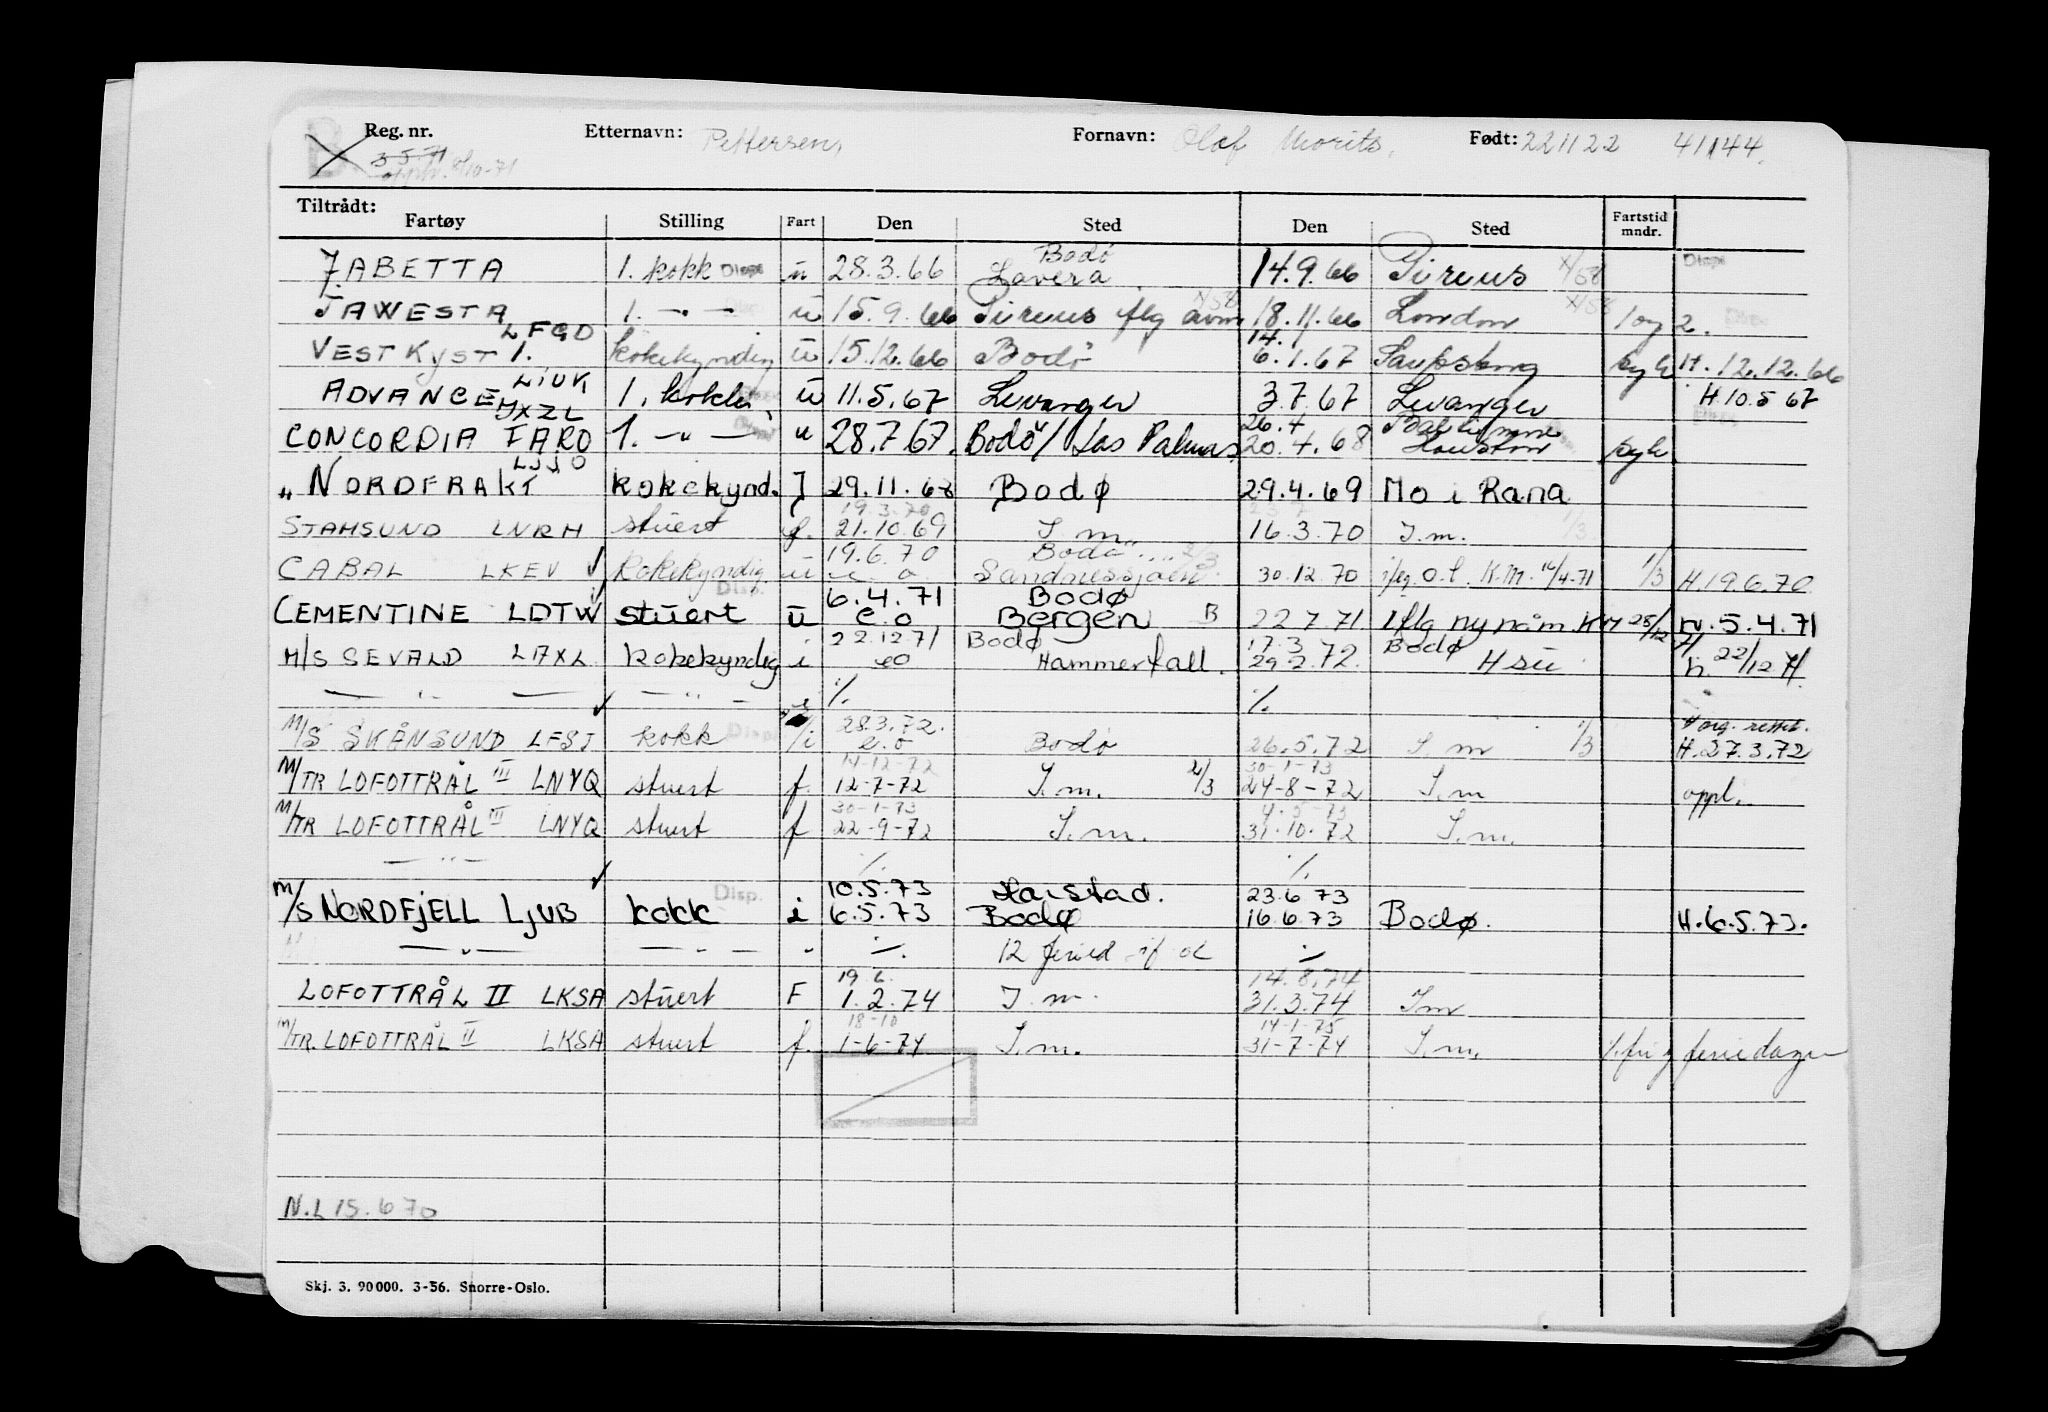 Reg. nr. Etternavn: Pettersen, Fornavn: Olaf Morits, Født: 221122 41144.
3.5.71
8/10-71
Tiltrådt:
Fartøy Stilling Fart Den Sted Den Sted Fartstid mndr.
Bodø
JABETTA 1. kokk Disp. u 28.3.66 Lavera 14.9.66 Pireus x/58 Disp
JAWESTA 1. -"- ü 15.9.66 Pireus flg avm x/58 18.11.66 London x/58 1 og 2.
LFGD 14.
VESTKYST 1. kokekyndig ü 15.12.66 Bodø 6.1.67 Sarpsborg syk H. 12.12.66
LIUK
ADVANCE 1. kokk ü 11.5.67 Levanger 3.7.67 Levanger H.10.5 67
26.4 Baltimore
CONCORDIA FARO 1. -"- u 28.7.67. Bodø / Las Palmas 20.4.68 Houston syk
LJJO
" NORDFRAKT kokekynd. I 29.11.68 Bodø 29.4.69 Mo i Rana
19.3.70 23.7
STAMSUND LNRH stuert f. 21.10.69 I m 16.3.70 I.m. 1/3
19.6.70 Bodø 2/3
CABAL LKEV kokekyndig ü e. o Sandnessjøen 30.12.70 i/flg. o.l. K.M. 16/4-71 1/3 H.19.6.70
Disp. 6.4.71 Bodø
CEMENTINE LDTW stuert ü e.o Bergen B 22 7 71 iflg ny nåm KM 28/12-71 H.5.4.71
22.12 71 Bodø 17.3 Bodø
M/S SEVALD LAXL kokekyndig i eo Hammerfall. 29.2.72. H sü h. 22/12 71
-"- -"- ./. ./.
28.3.72. H org. rettet.
M/S SKÅNSUND LFSJ kokk Disp. i e.o Bodø 26.5.72 I m 1/3 H.27.3.72
14-12-72 30-1-73
M/TR LOFOTTRÅL III LNYQ stuert f. 12-7-72 I.m. 2/3 24-8-72 I.m oppl.
30-1-73 4-5-73
M/TR LOFOTTRÅL III LNYQ stuert f 22-9-72 I.m. 31.10.72 I.m.
-"- ./. ./.
Disp. 10.5.73 Harstad. 23.6 73
M/S NORDFJELL LJUB kokk i 6.5.73 Bodø 16.6.73 Bodø. H.6.5.73.
-"- -"- " ./. 12 feried if ol ./.
19 6. 14.8.74
LOFOTTRÅL II LKSA stuert F 1.2.74 I.m. 31.3.74 Im
18-10 14-1-75
M/TR. LOFOTTRÅL II LKSA stuert f. 1-6-74 I.m. 31-7-74 I.m. ./. fri g feriedager
N.L 15.6 70
Skj. 3. 90000. 3-56. Snorre-Oslo.